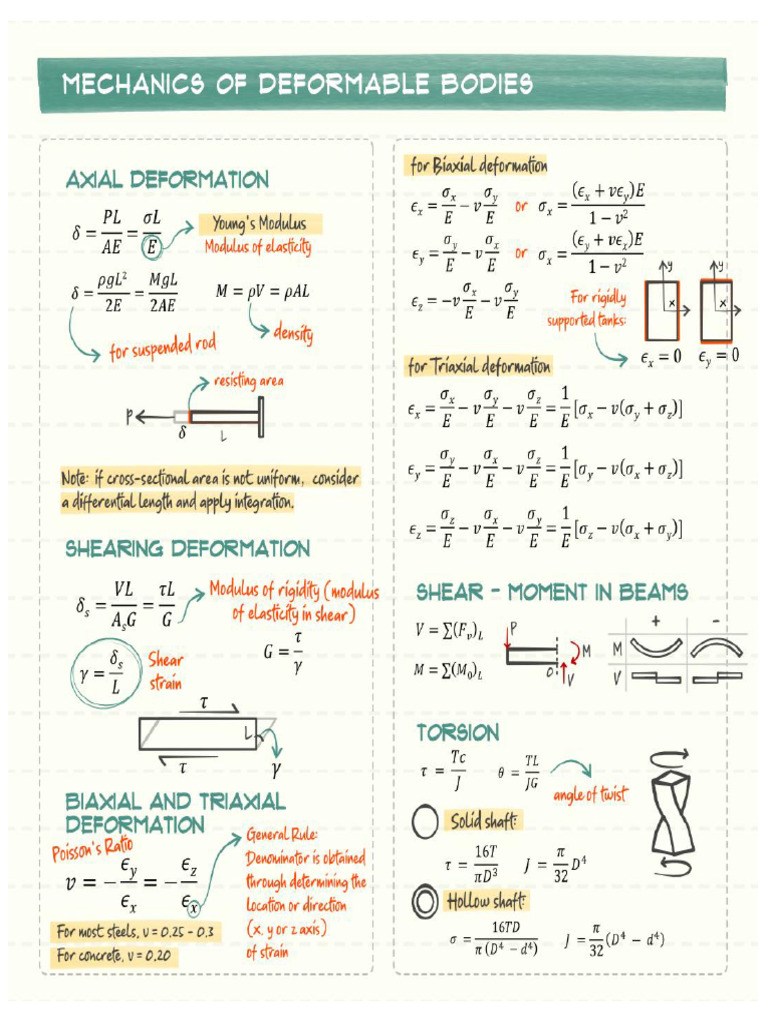 MECHANICS OF DEFORMABLE BODIES
AXIAL DEFORMATION
δ = PL/AE = σL/E
Young's Modulus
Modulus of elasticity
δ = ρgL²/2E = MgL/2AE
M = ρV = ρAL
for suspended rod
density
resisting area
P
δ
L
Note: if cross-sectional area is not uniform, consider
a differential length and apply integration.
SHEARING DEFORMATION
δₛ = VL/AₛG = τL/G
Modulus of rigidity (modulus
of elasticity in shear)
G = τ/γ
γ = δₛ/L
Shear
strain
τ
L
τ
γ
BIAXIAL AND TRIAXIAL
DEFORMATION
Poisson's Ratio
v = −ϵy/ϵx = −ϵz/ϵx
General Rule:
Denominator is obtained
through determining the
location or direction
(x, y or z axis)
of strain
For most steels, v = 0.25 - 0.3
For concrete, v = 0.20
for Biaxial deformation
ϵx = σx/E − v σy/E or σx = (ϵx + vϵy)E/1 − v²
ϵy = σy/E − v σx/E or σx = (ϵy + vϵx)E/1 − v²
ϵz = −v σx/E − v σy/E
For rigidly
supported tanks:
y
x
y
x
ϵx = 0
ϵy = 0
for Triaxial deformation
ϵx = σx/E − v σy/E − v σz/E = 1/E [σx − v(σy + σz)]
ϵy = σy/E − v σx/E − v σz/E = 1/E [σy − v(σx + σz)]
ϵz = σz/E − v σx/E − v σy/E = 1/E [σz − v(σx + σy)]
SHEAR - MOMENT IN BEAMS
V = ∑(Fv)L
M = ∑(M0)L
P
M
O
V
+ -
M
V
TORSION
τ = Tc/J
θ = TL/JG
angle of twist
Solid shaft:
τ = 16T/πD³
J = π/32 D⁴
Hollow shaft:
σ = 16TD/π(D⁴ − d⁴)
J = π/32 (D⁴ − d⁴)